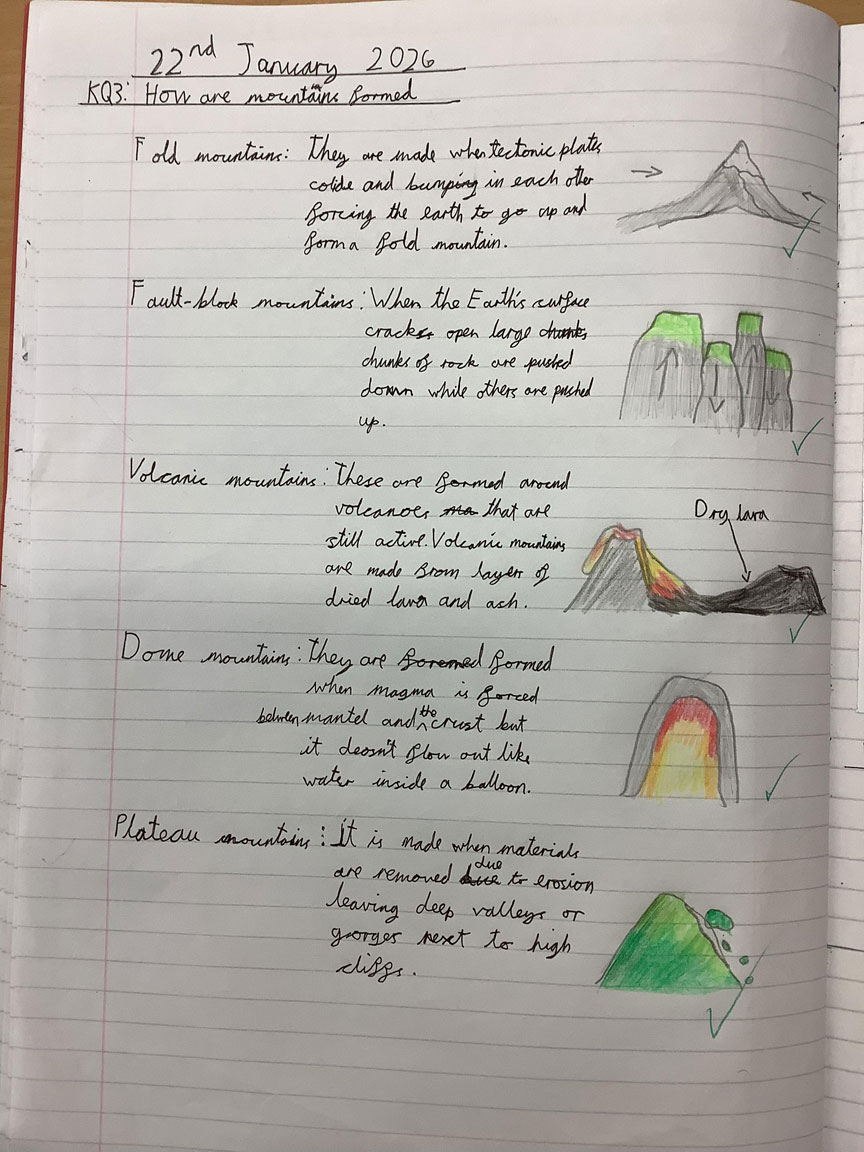 22nd January 2026
KQ3: How are mountains formed
Fold mountains: They are made when tectonic plates
colide and bumping in each other
forcing the earth to go up and
form a fold mountain.
Fault-block mountains: When the Earth's surface
cracks open large chunks
chunks of rock are pushed
down while others are pushed
up.
Volcanic mountains: These are formed around
volcanoes ma that are
still active. Volcanic mountains
Dry lava
are made from layers of
dried lava and ash.
Dome mountains: They are foremed formed
when magma is forced
between mantel and the crust but
it deosn't flow out like
water inside a balloon.
Plateau mountains: It is made when materials
are removed due to erosion
leaving deep valleys or
gorges next to high
cliffs.